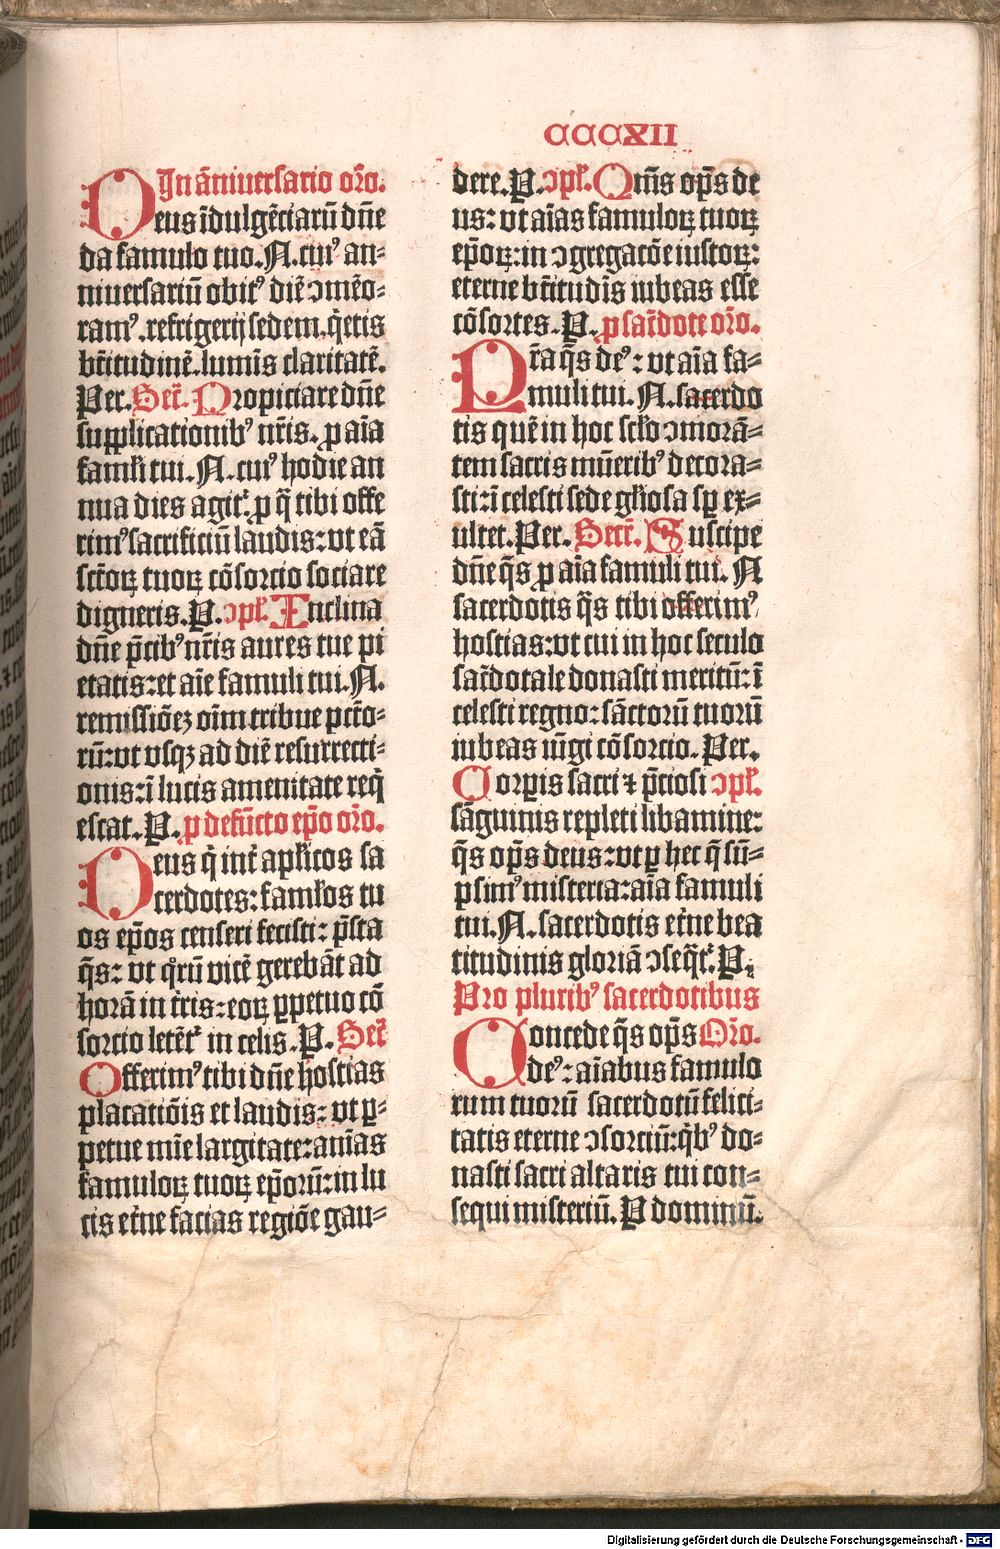 CCCXII
In ãniuersario oro̅.
Deus īdulgẽciarũ dn̄e
da famulo tuo. N. cuiꝰ an⸗
niuersariũ obitꝰ diẽ ↄmẽo⸗
ramꝰ. refrigerij sedem, q̄etis
bt̄itudinẽ. lumĩs claritatẽ.
Per. Secr̄. Propiciare dn̄e
supplicationibꝰ nr̄is. ꝓ aĩa
famĺi tui. N. cuiꝰ hodie an
nua dies agit᷑. ꝓ q̃ tibi offe
rimꝰ sacrificiũ laudis: vt eã
sct̄oꝝ tuoꝝ cõsorcio sociare
digneris. P. ↄpĺ. Inclina
dn̄e p̄cibꝰ nr̄is aures tue pi
etatis: et aĩe famuli tui. N.
remissiõeꝫ oĩm tribue pctõ⸗
rũ: vt vsqꝫ ad diẽ resurrecti⸗
onis: ĩ lucis amenitate req̄
escat. P. ꝓ defũcto ep̄o oro̅.
Deus q̇ int̄ apĺicos sa
cerdotes: famĺos tu
os ep̄os censeri fecisti: p̄sta
q̄s: vt q̊rũ vicẽ gerebãt ad
horã in t̄ris: eoꝝ ꝑpetuo cõ
sorcio letẽt᷑ in celis. P. Secr̄
Offerimꝰ tibi dn̄e hostias
placatiõis et laudis: vt ꝑ⸗
petue mĩe largitate: animas
famuloꝝ tuoꝝ ep̄orũ: in lu
cis et̄ne facias regiõe gau⸗
dere. P. ↄpĺ. Om̃s op̄s de
us: vt aĩas famuloꝝ tuoꝝ
ep̄oꝝ: in ↄgregacõe iustoꝝ:
eterne bt̄itudĩs iubeas esse
cõsortes. P. ꝓ sac̄dote oro̅.
Pr̄a q̄s deꝰ: vt aĩa fa⸗
muli tui. N. sacerdo
tis quẽ in hoc scĺo ↄmorã⸗
tem sacris mũeribꝰ decora⸗
sti: ĩ celesti sede gĺiosa sꝑ ex⸗
ultet. Per. Secr̄. Suscipe
dn̄e q̄s ꝓ aĩa famuli tui. N
sacerdotis q̄s tibi offerimꝰ
hostias: vt cui in hoc seculo
sac̄dotale donasti meritũ: ĩ
celesti regno: sãctorũ tuorũ
iubeas iũgi cõsorcio. Per.
Corꝑis sacri ⁊ p̄ciosi ↄpĺ.
sãguinis repleti libamine:
q̄s op̄s deus: vt ꝑ hec q̃ sũ⸗
psimꝰ misteria: aĩa famuli
tui. N. sacerdotis et̄ne bea
titudinis gloriã ↄseq̃t᷑. P.
Pro pluribꝰ sacerdotibus
Concede q̄s op̄s Oro̅.
deꝰ: aĩabus famulo
rum tuorũ sacerdotũ felici⸗
tatis eterne ↄsorciũ: q̇bꝰ do⸗
nasti sacri altaris tui con⸗
sequi misteriũ. P dominũ.
Digitalisierung gefördert durch die Deutsche Forschungsgemeinschaft - DFG